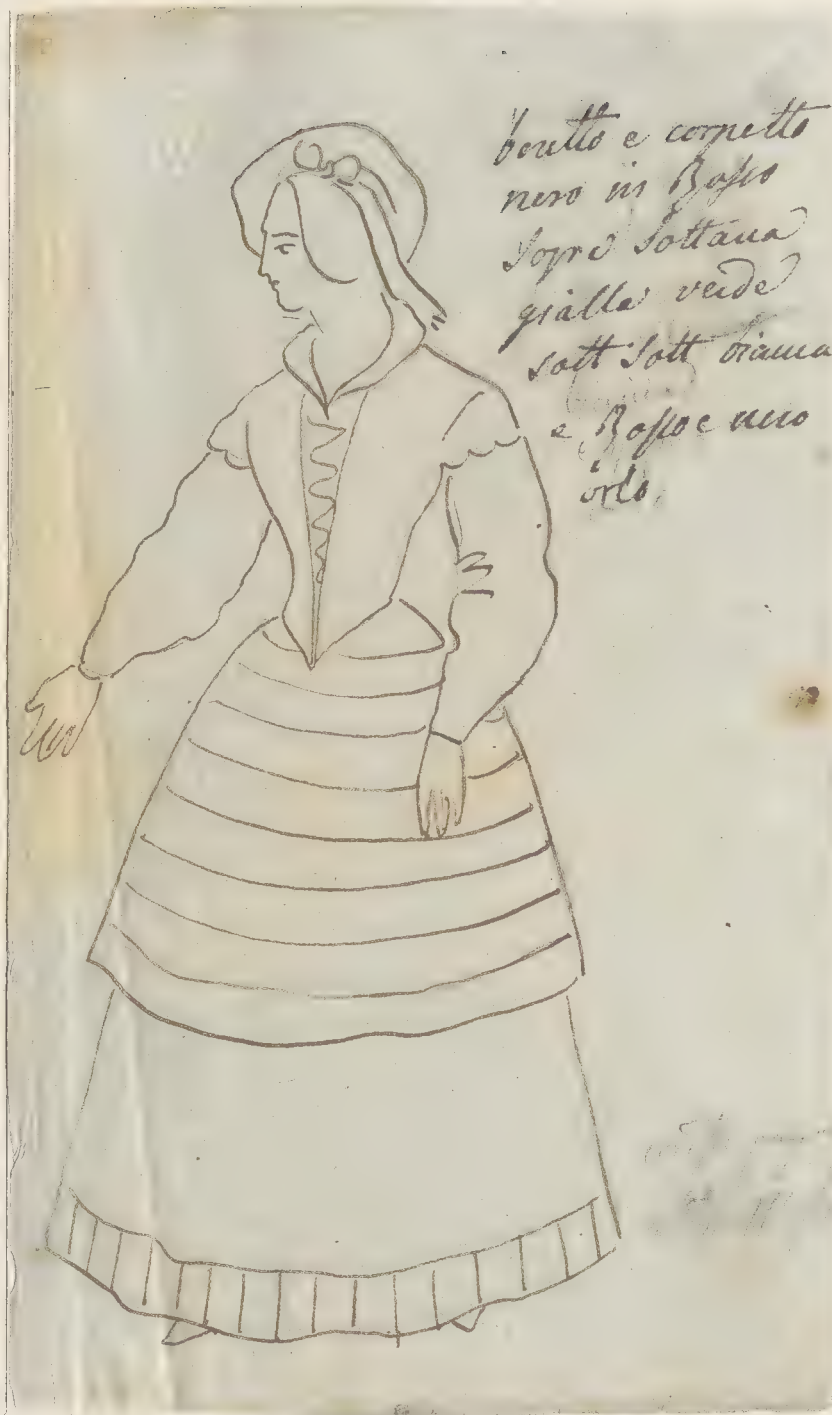 beretto e corpetto
nero in Rosso
sopra Sottana
gialla verde
sott sott bianca
e Rosso e nero
orlo